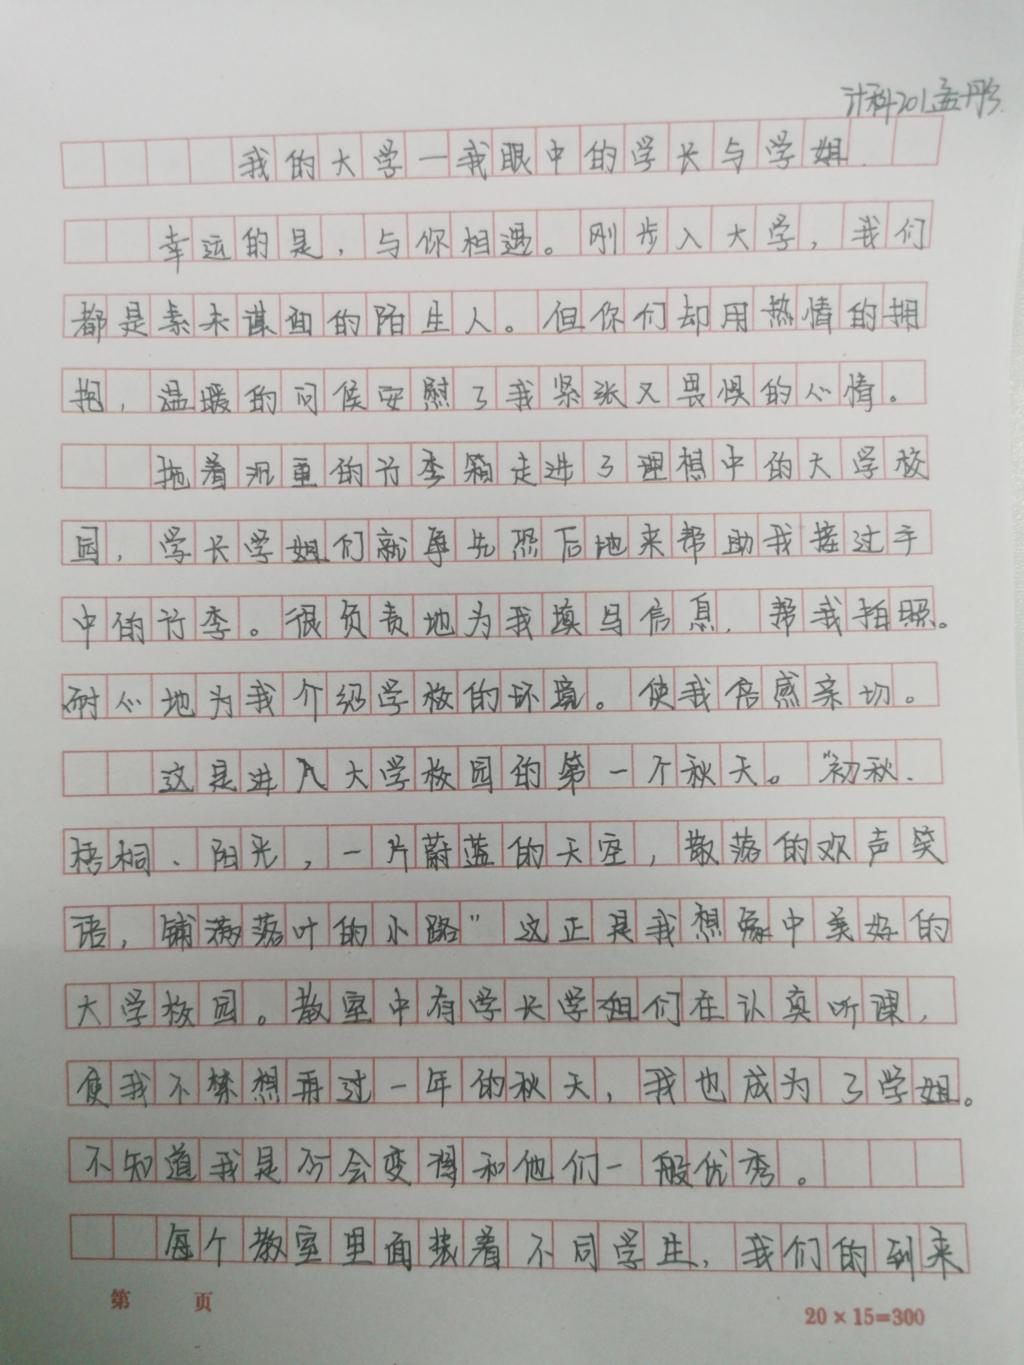 计科201孟彤
我的大学—我眼中的学长与学姐
幸运的是，与你相遇。刚步入大学，我们
都是素未谋面的陌生人。但你们却用热情的拥
抱，温暖的问候安慰了我紧张又畏惧的心情。
拖着沉重的行李箱走进了理想中的大学校
园，学长学姐们就争先恐后地来帮助我接过手
中的行李。很负责地为我填写信息，帮我拍照。
耐心地为我介绍学校的环境。使我倍感亲切。
这是进入大学校园的第一个秋天。“初秋、
梧桐、阳光，一片蔚蓝的天空，散落的欢声笑
语，铺满落叶的小路”这正是我想象中美好的
大学校园。教室中有学长学姐们在认真听课，
使我不禁想再过一年的秋天，我也成为了学姐。
不知道我是否会变得和他们一般优秀。
每个教室里面装着不同学生，我们的到来
第 页
20×15=300